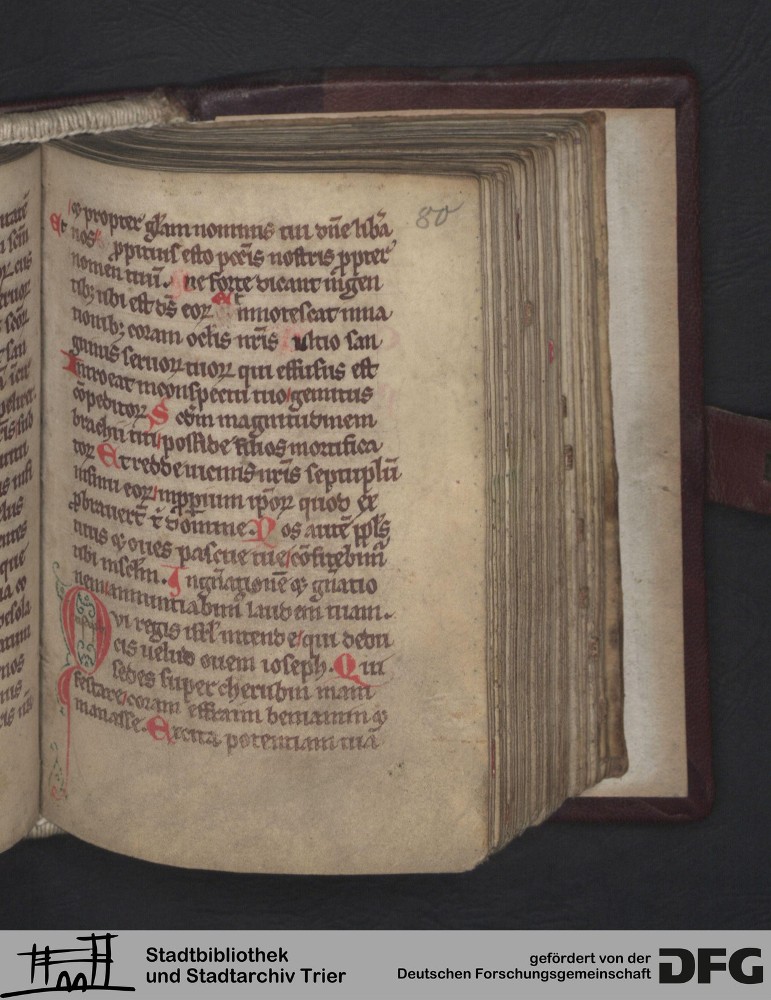 80
⁊ propter gl̄am nominis tui dn̄e lib̄a
Et nos ꝓpitius esto pcc̄is nostris ꝓpter
nomen tuū. ne forte dicant ingen
tib; ubi est ds̄ eoꝝ Et innotescat in na
tionib; coram oclis nr̄is ultio san
guinis seruoꝝ tuoꝝ qui effusus est
Introeat in conspectu tuo gemitus
cōpeditoꝝ Scd̄m magnitudinem
brachii tui posside filios mortifica
toꝝ Et redde uicinis nr̄is septuplū
in sinu eoꝝ inꝓpium ip̄oꝝ quod ex
ꝓbrauert̄ t̄ domine. Nos aut̄e ppl̄s
tuus ⁊ oues pascue tue cōfitebim̄
tibi in sclm̄. In gn̄ationē ⁊ gn̄atio
nem annuntiabim̄ laudem tuam.
Qvi regis isrl̄ intende qui dedu
cis uelud ouem ioseph. Qui
sedes super cherubin mani
festare coram effraim beniamin ⁊
manasse. Excita potentiam tuā
Stadtbibliothek
und Stadtarchiv Trier
gefördert von der
Deutschen Forschungsgemeinschaft
DFG